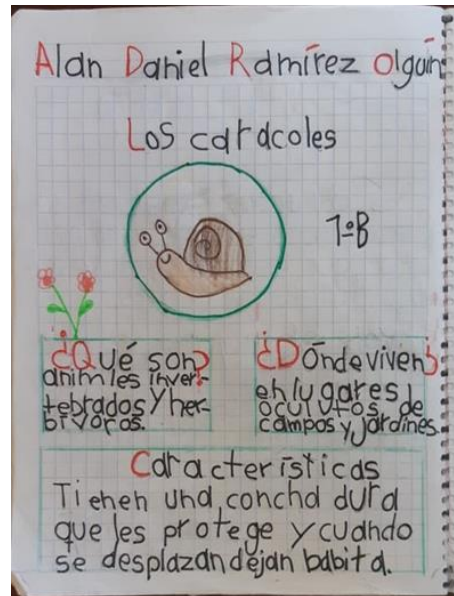 Alan Daniel Ramírez Olguín
Los caracoles
1ºB
¿Qué son?
animles inver-
tebrados y her-
bívoros.
¿Dónde viven?
en lugares
ocultos de
campos y jardines.
Características
Tienen una concha dura
que les protege y cuando
se desplazan dejan babita.